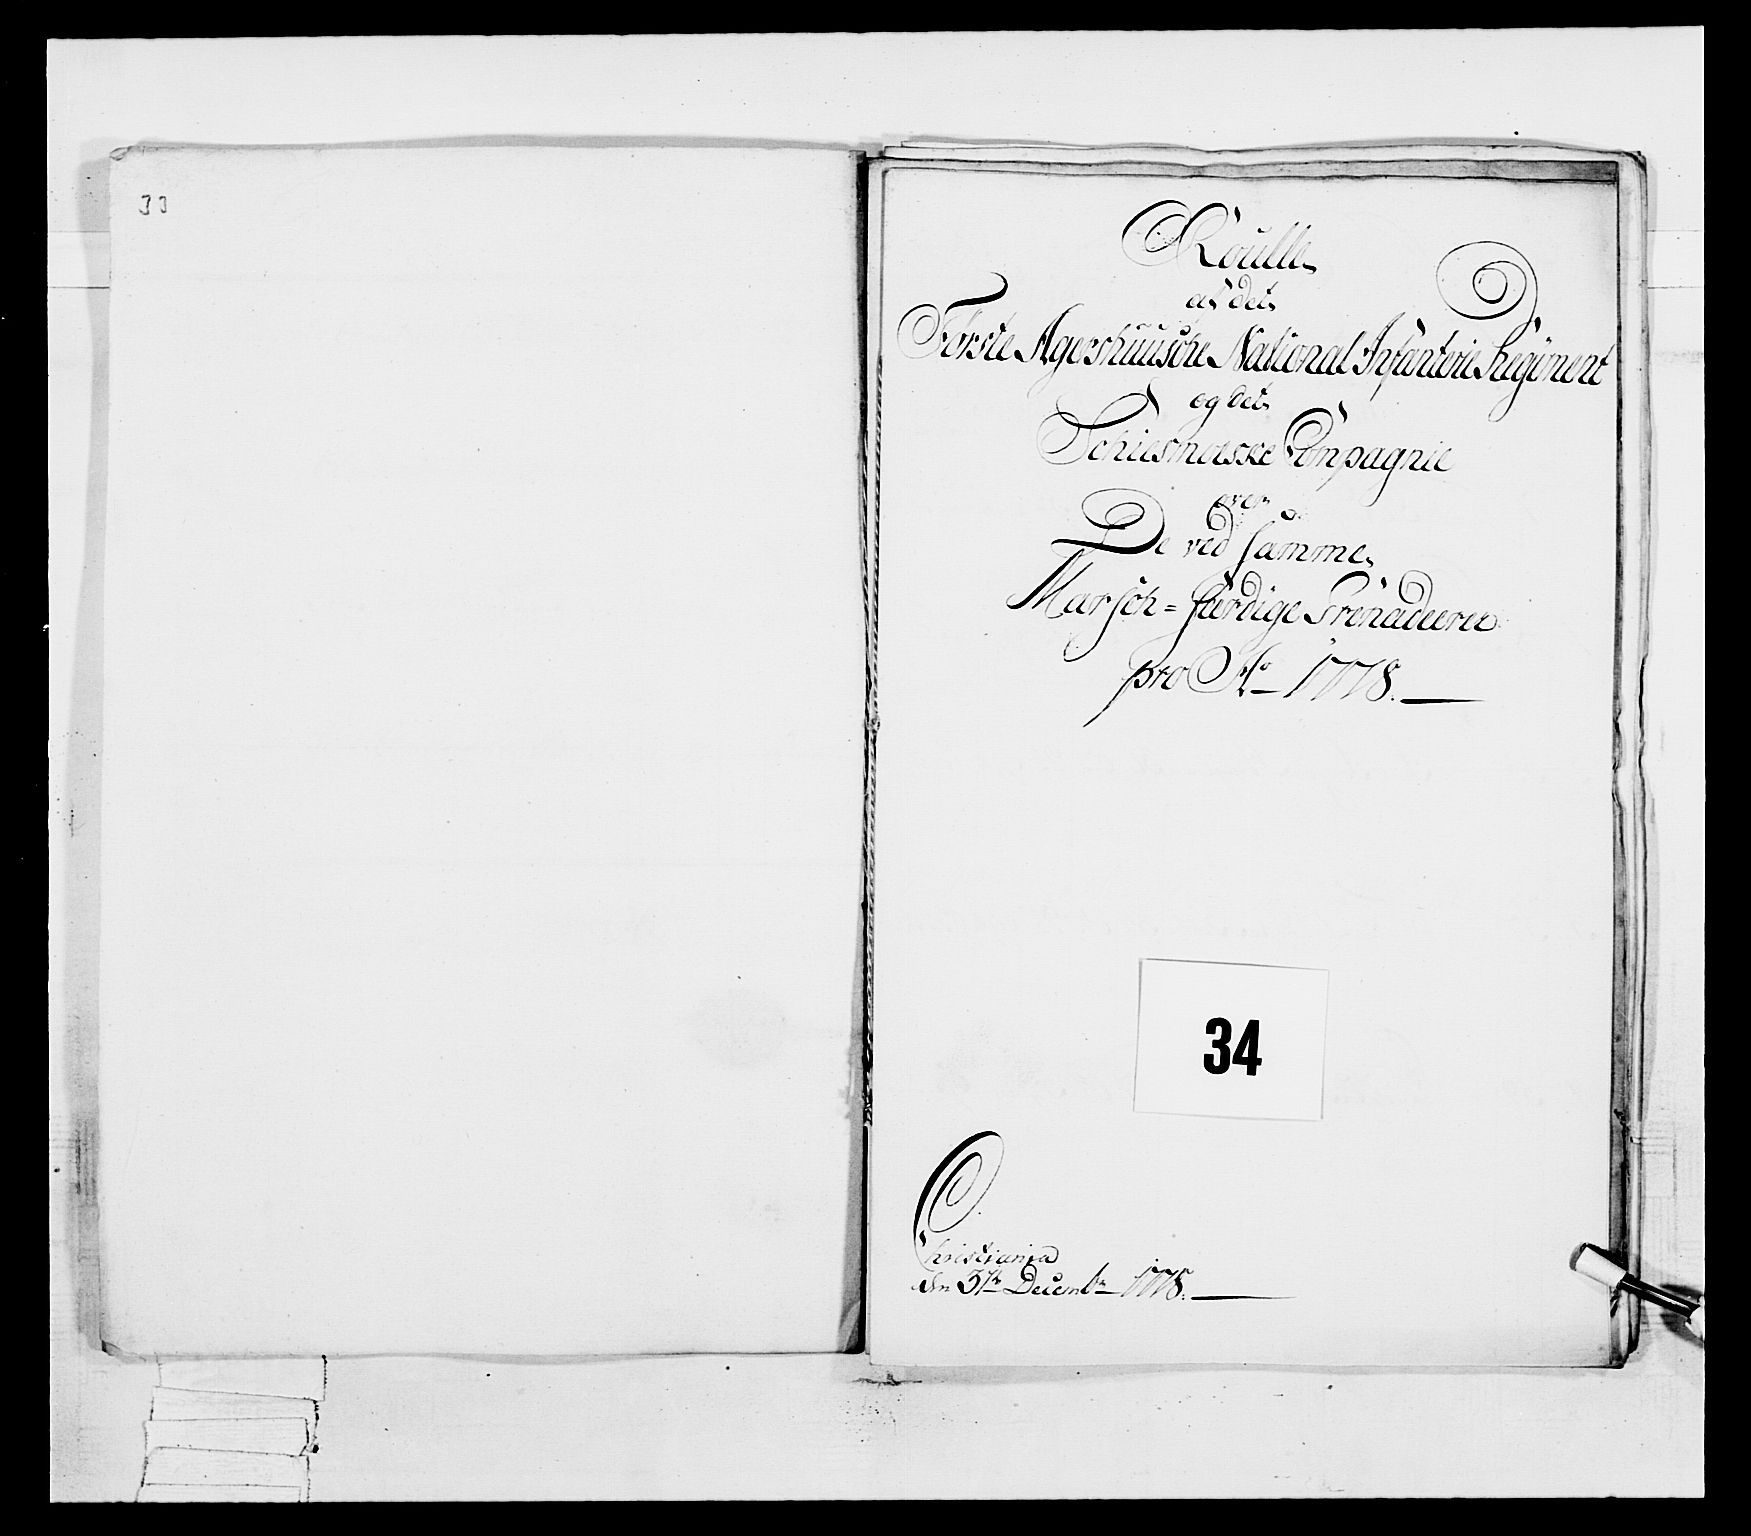 33
Roulle
af det
Første Agershuusche National Infanterie Regiment
og det
Schiesmoeske Compagnie
over
De ved samme
Marsch=færdige Grenadeerer
pro Ao 1778.
34
Christiania
den 31te Decembr 1778.